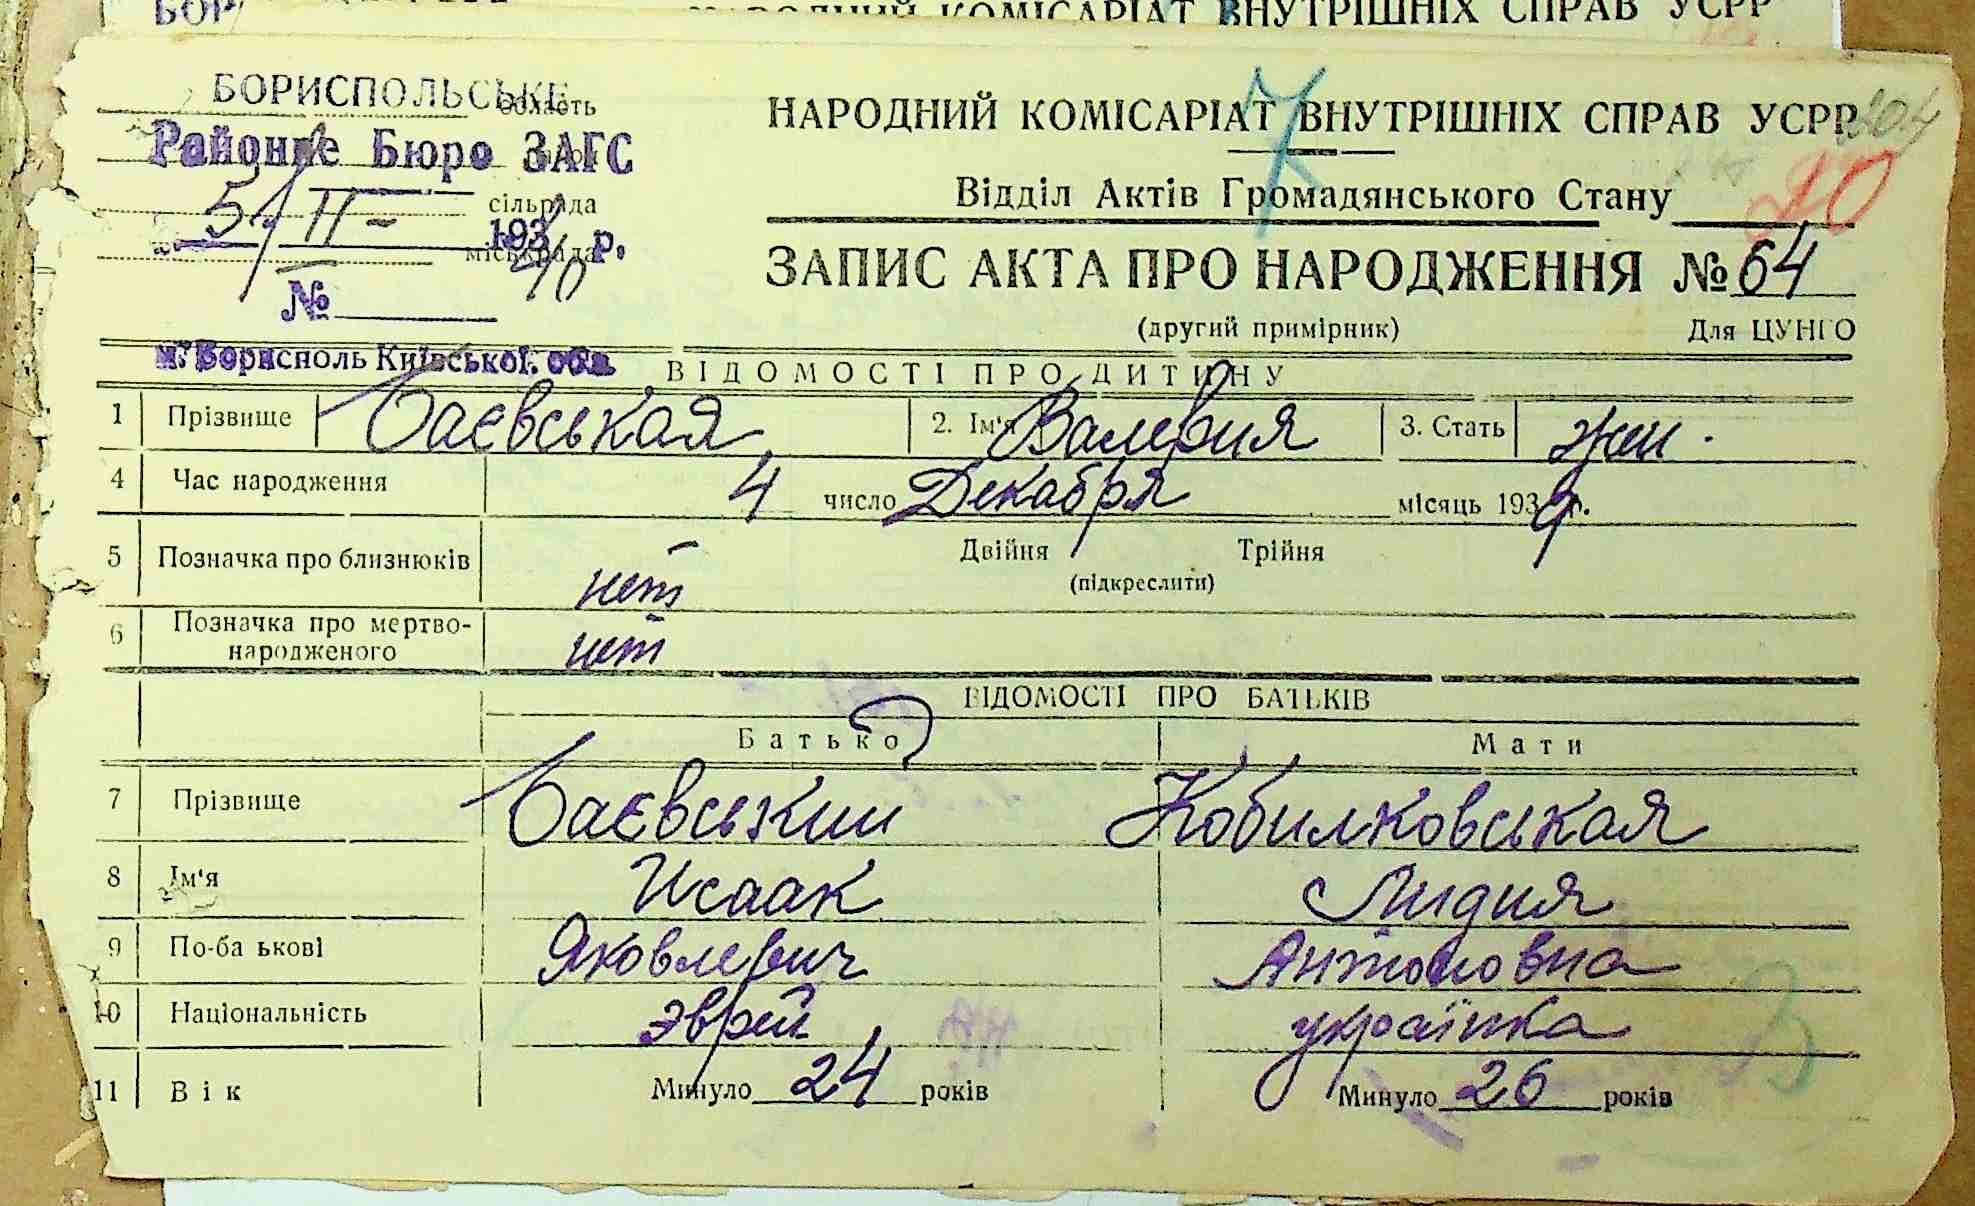 НАРОДНИЙ КОМІСАРІАТ ВНУТРІШНІХ СПРАВ УСРР
БОРИСПОЛЬСЬКЕ
область
Районне Бюро ЗАГС
5/II- 193 р.
сільрада
міськрада
40
№
м. Борисполь Київської обл.
НАРОДНИЙ КОМІСАРІАТ ВНУТРІШНІХ СПРАВ УСРР
7
204
20
Відділ Актів Громадянського Стану
ЗАПИС АКТА ПРО НАРОДЖЕННЯ № 64
(другий примірник) Для ЦУНГО
ВІДОМОСТІ ПРО ДИТИНУ
1 Прізвище Баєвськая 2. Ім'я Валерия 3. Стать жен.
4 Час народження 4 число Декабря місяць 1939 р.
5 Позначка про близнюків нет Двійня Трійня
(підкреслити)
6 Позначка про мертво-
народженого нет
ВІДОМОСТІ ПРО БАТЬКІВ
Батько Мати
7 Прізвище Баєвський Кобилковськая
8 Ім'я Исаак Лидия
9 По-ба ькові Яковлевич Антоновна
10 Національність эврей українка
11 Вік Минуло 24 років Минуло 26 років